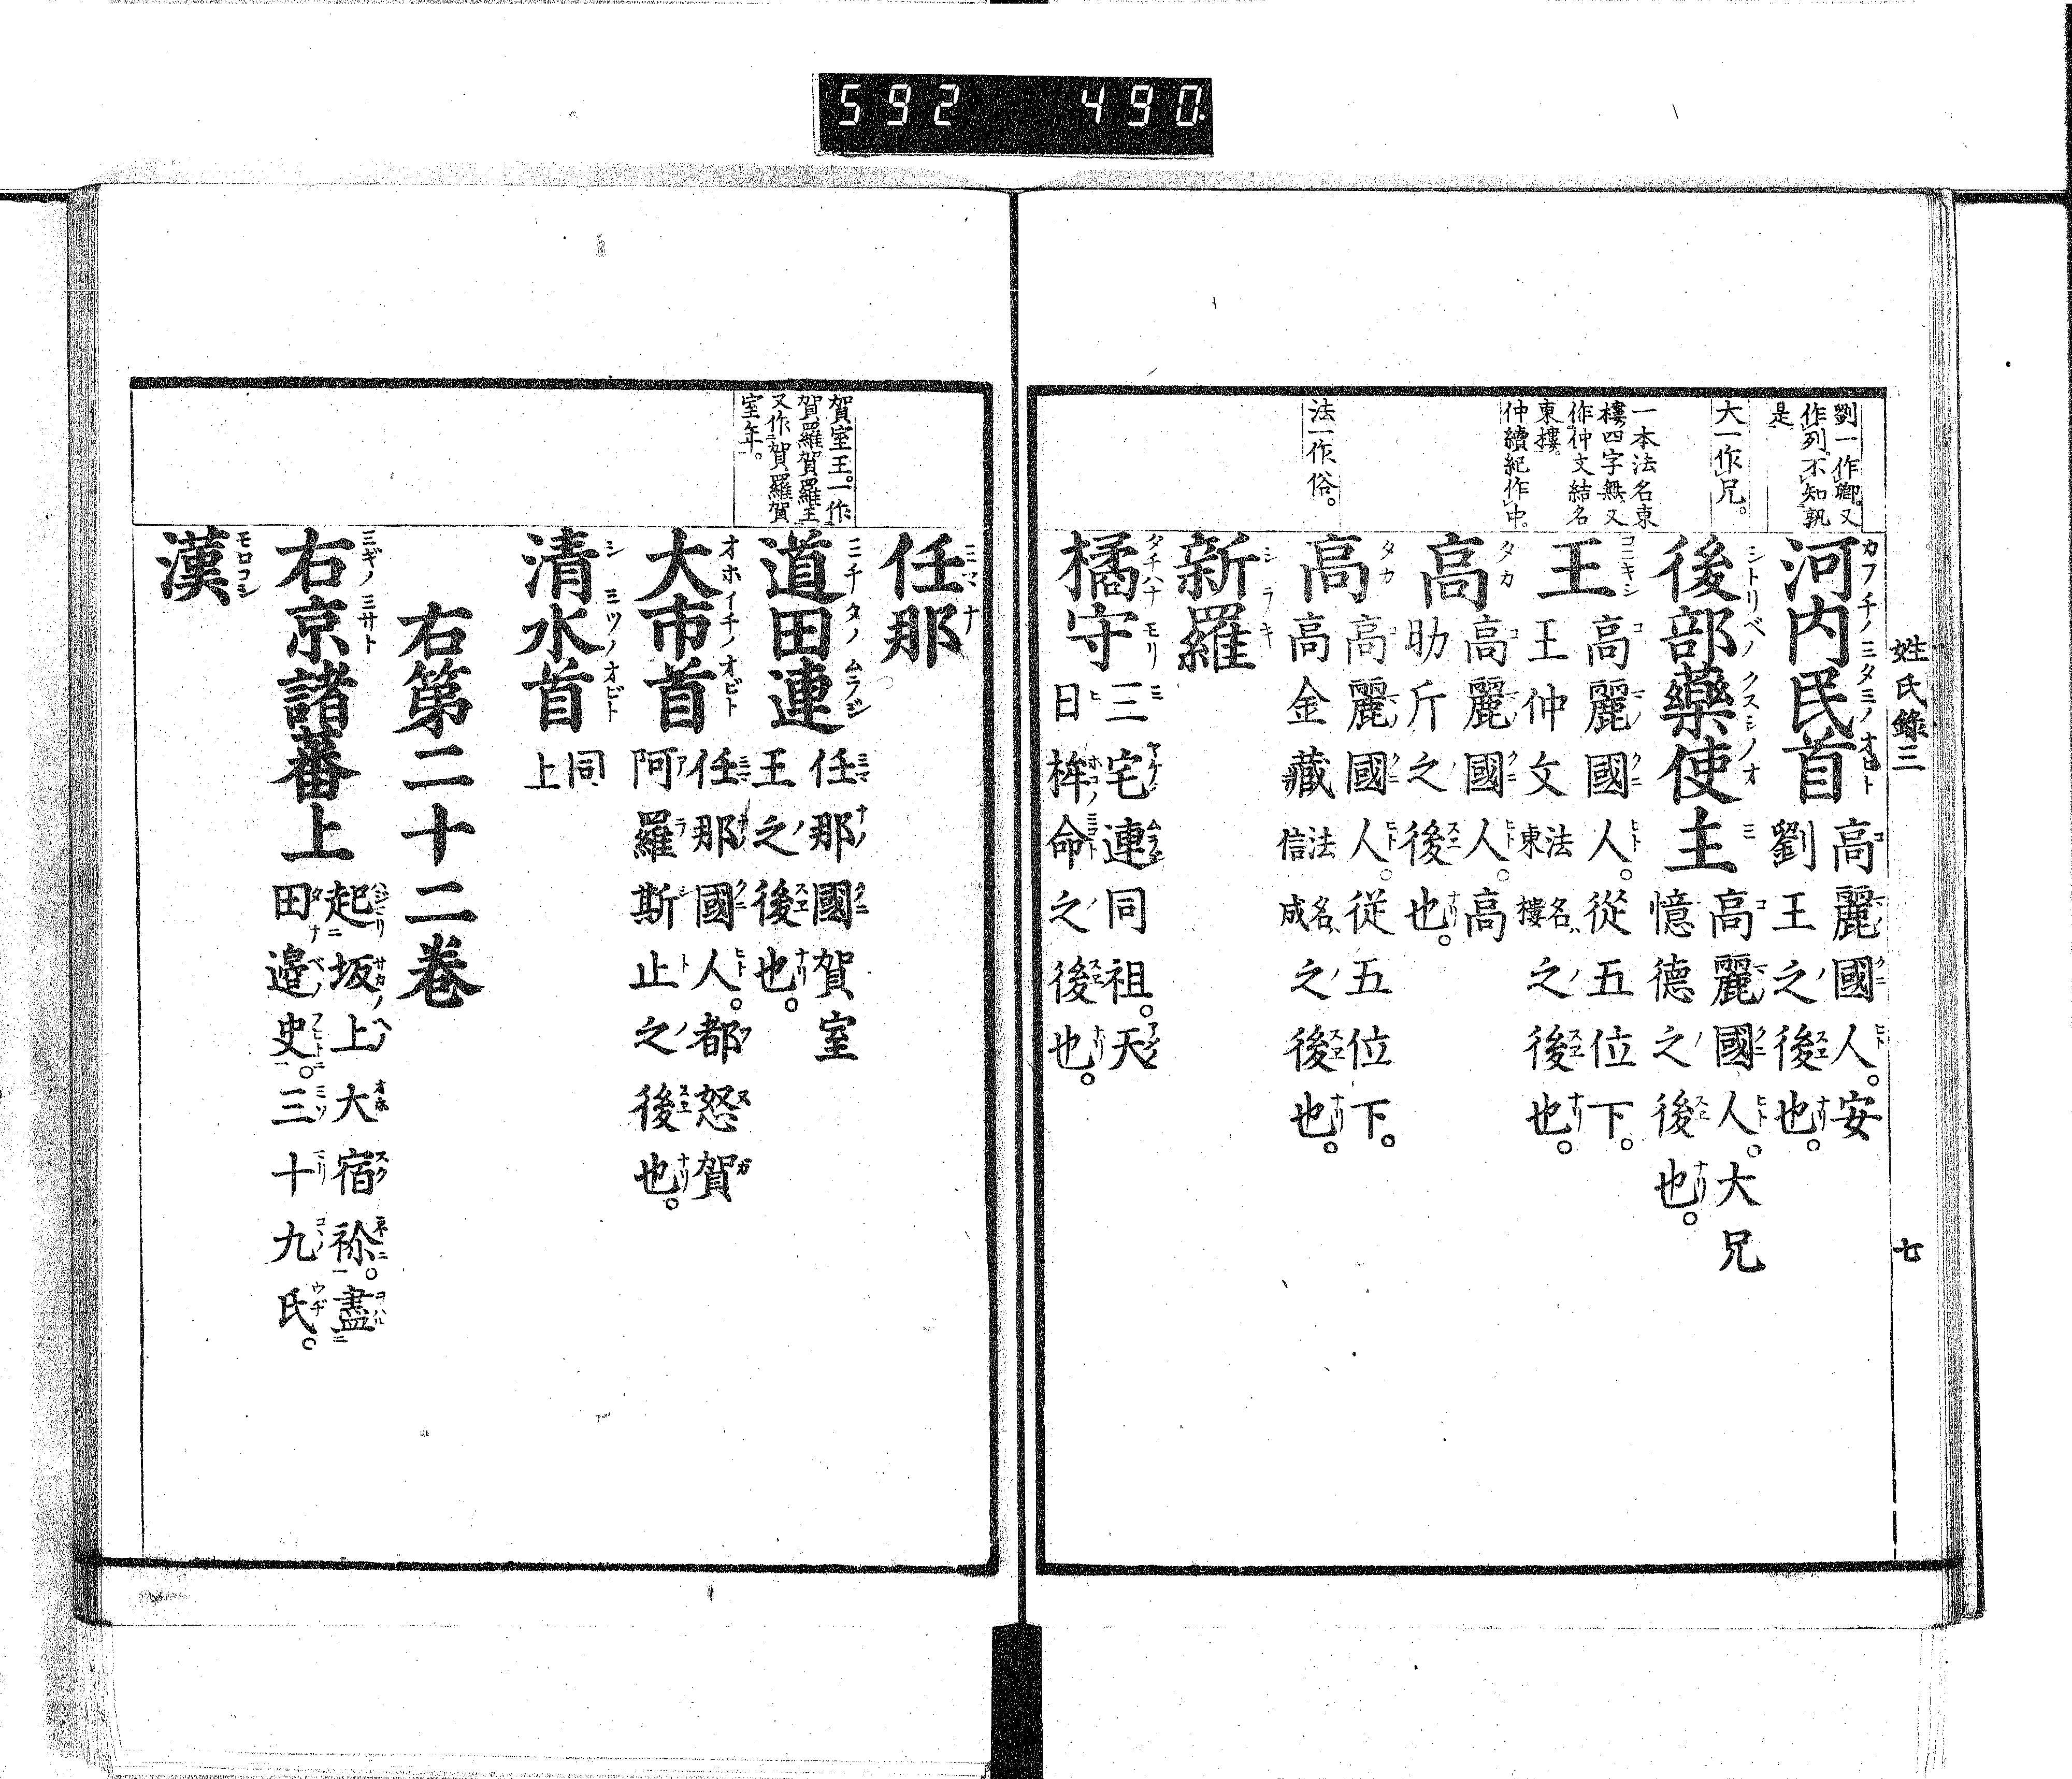 592 490
姓氏錄三
七
劉一作卿。又
作列。不知孰
是
大一作兄。
一本法名東
樓四字無又
作仲文結名
東樓。
仲續紀作中。
法一作俗。
河内民首 高麗國人。安
劉王之後也。
後部藥使主 高麗國人。大兄
憶德之後也。
王 高麗國人。從五位下。
王仲文 法名東樓 之後也。
高 高麗國人。高
助斤之後也。
高 高麗國人。從五位下。
高金藏 法名信成 之後也。
新羅
橘守 三宅連同祖。天
日桙命之後也。
賀室王。一作
賀羅賀羅王
又作賀羅賀
室年。
任那
道田連 任那國賀室
王之後也。
大市首 任那國人。都怒賀
阿羅斯止之後也。
清水首 同上
右第二十二卷
右京諸蕃上 起坂上大宿祢。盡
田邉史。三十九氏。
漢